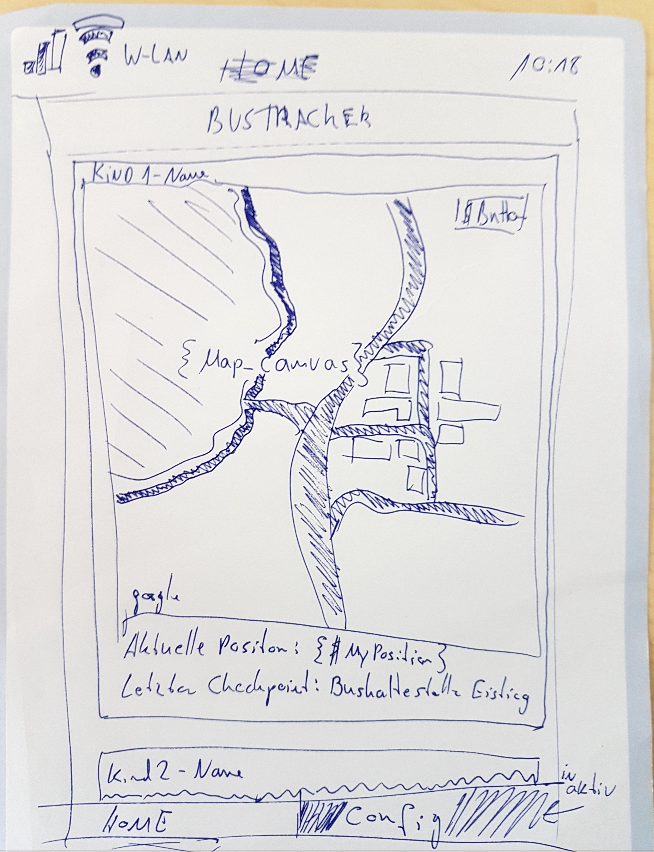 W-LAN HOME 10:18
BUSTRACKER
KIND 1-Name
{Map_canvas}
google
Aktuelle Position: {$MyPosition}
Letzter Checkpoint: Bushaltestelle Eistieg
Kind 2-Name
in
aktiv
HOME Config